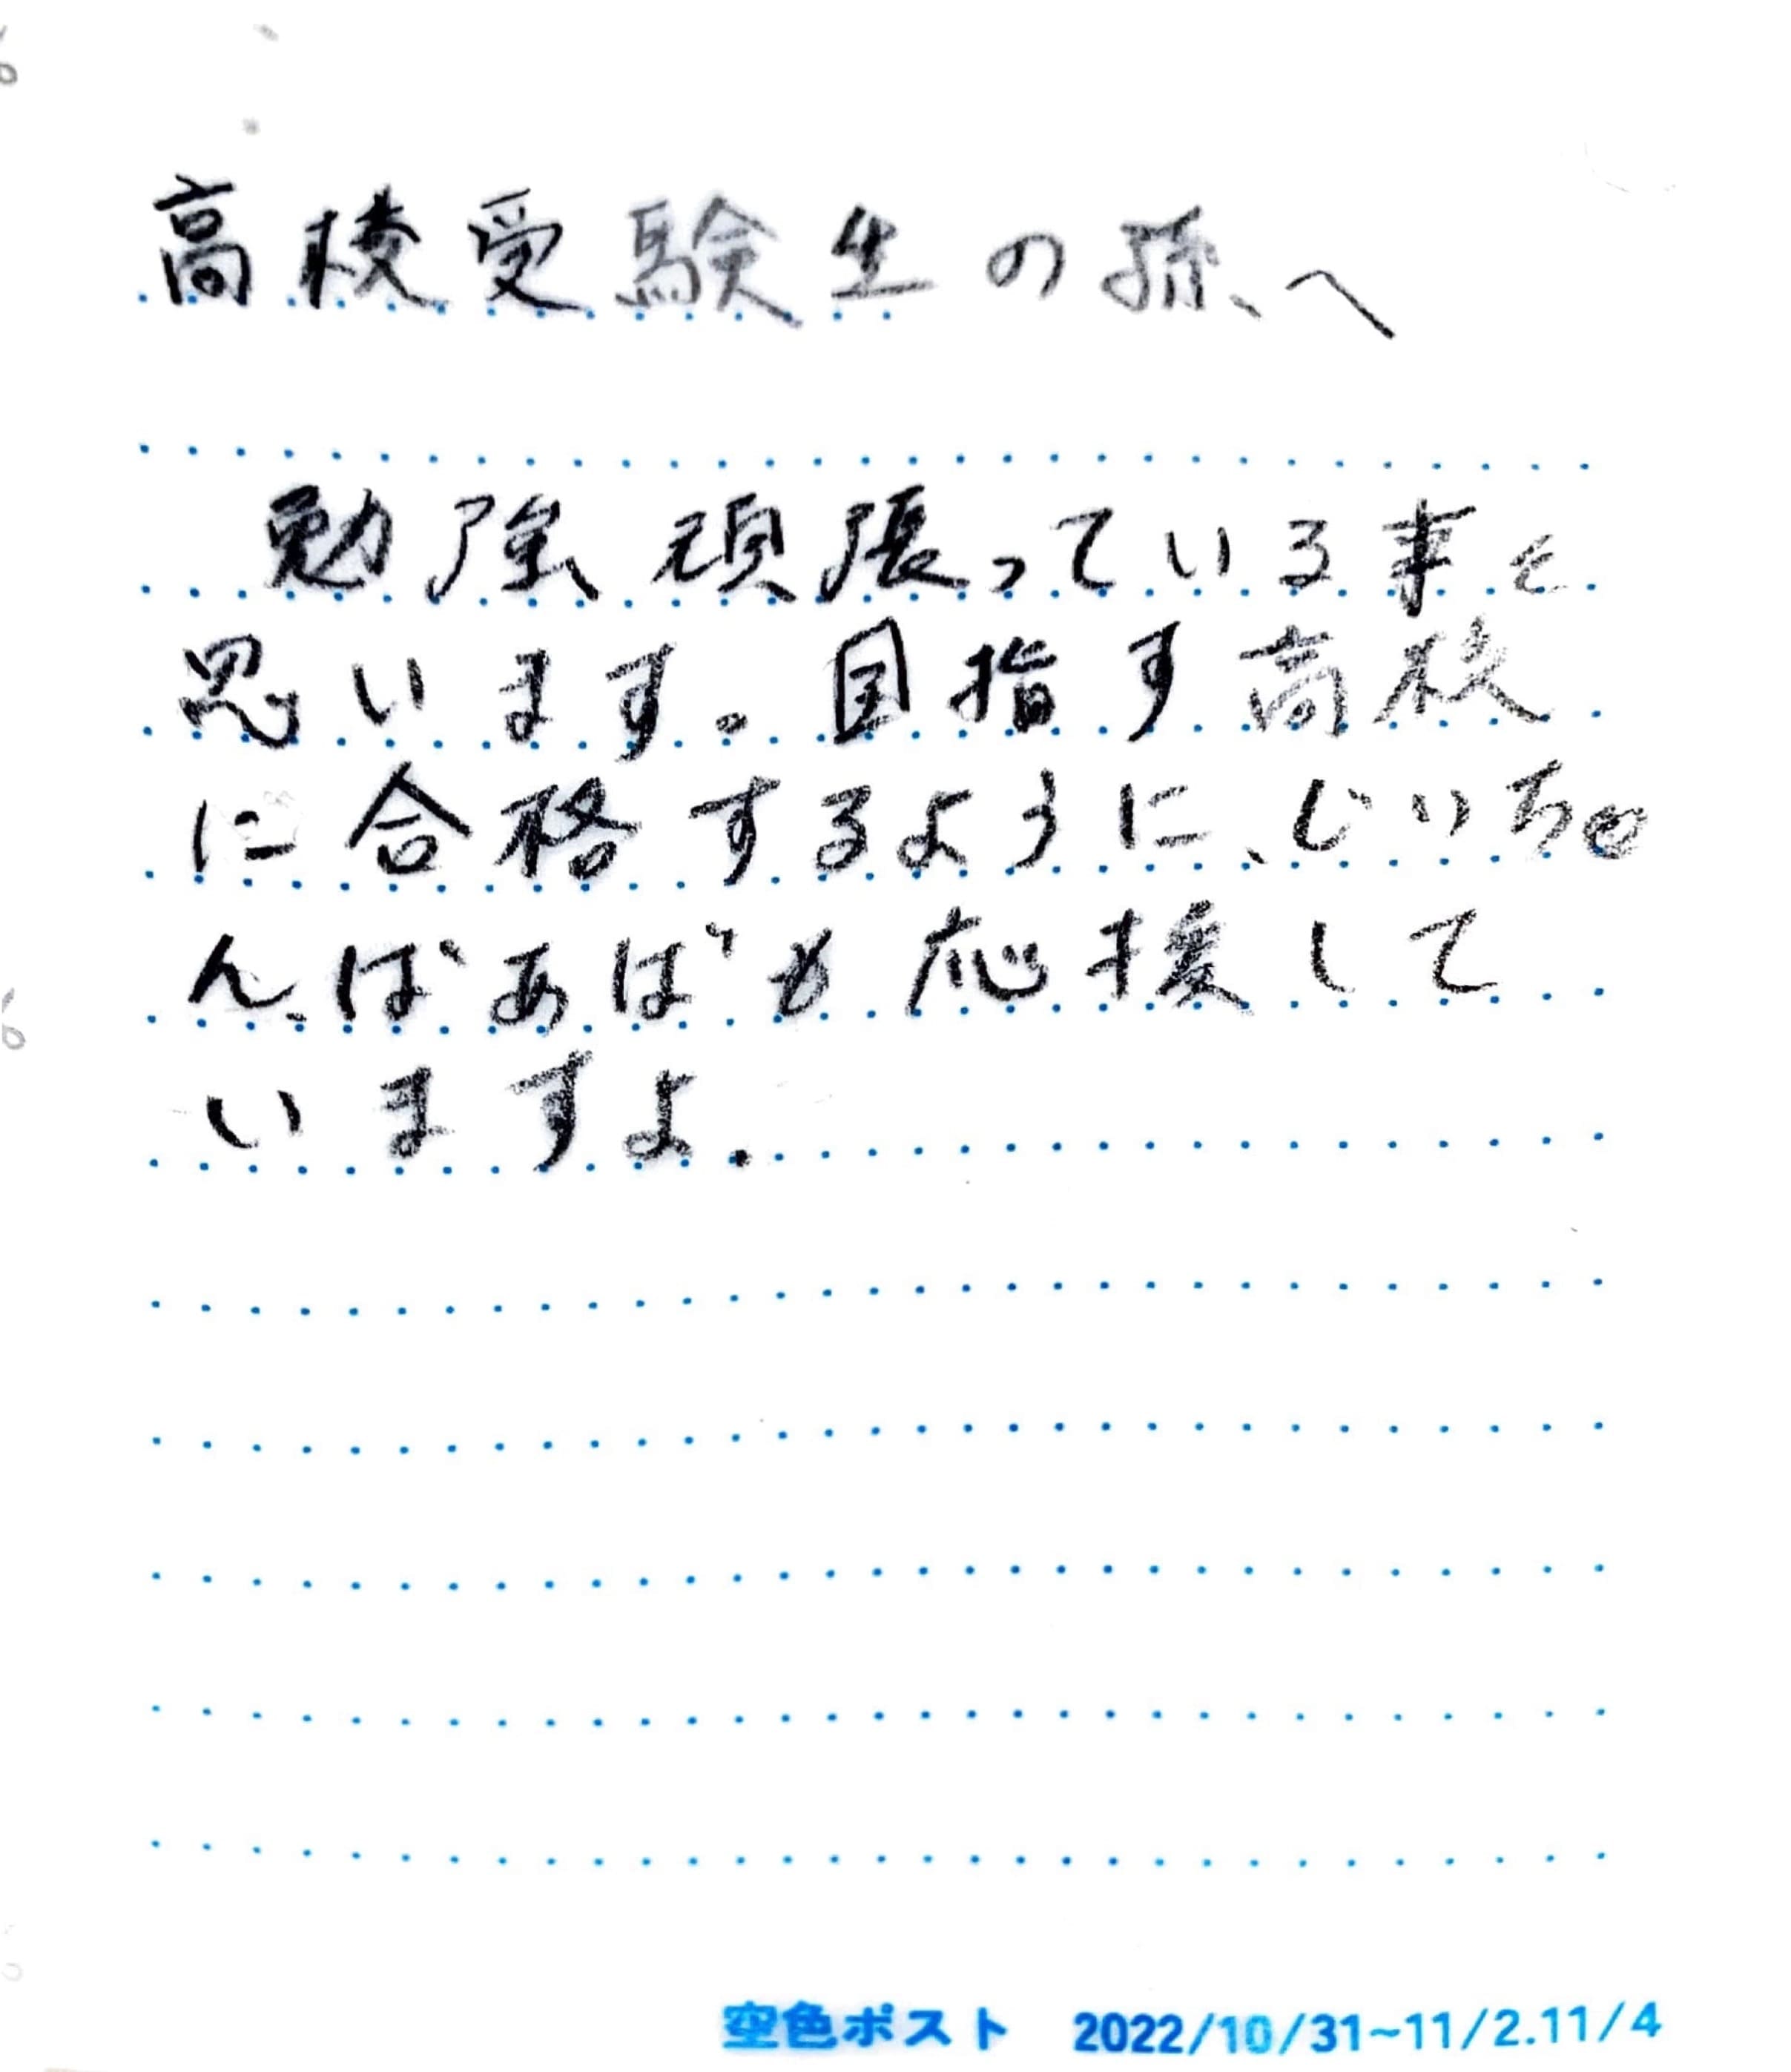 高校受験生の孫へ
勉強頑張っている事と
思います。目指す高校
に合格するように、じいちゃ
ん、ばあばも応援して
いますよ.
空色ポスト 2022/10/31~11/2.11/4